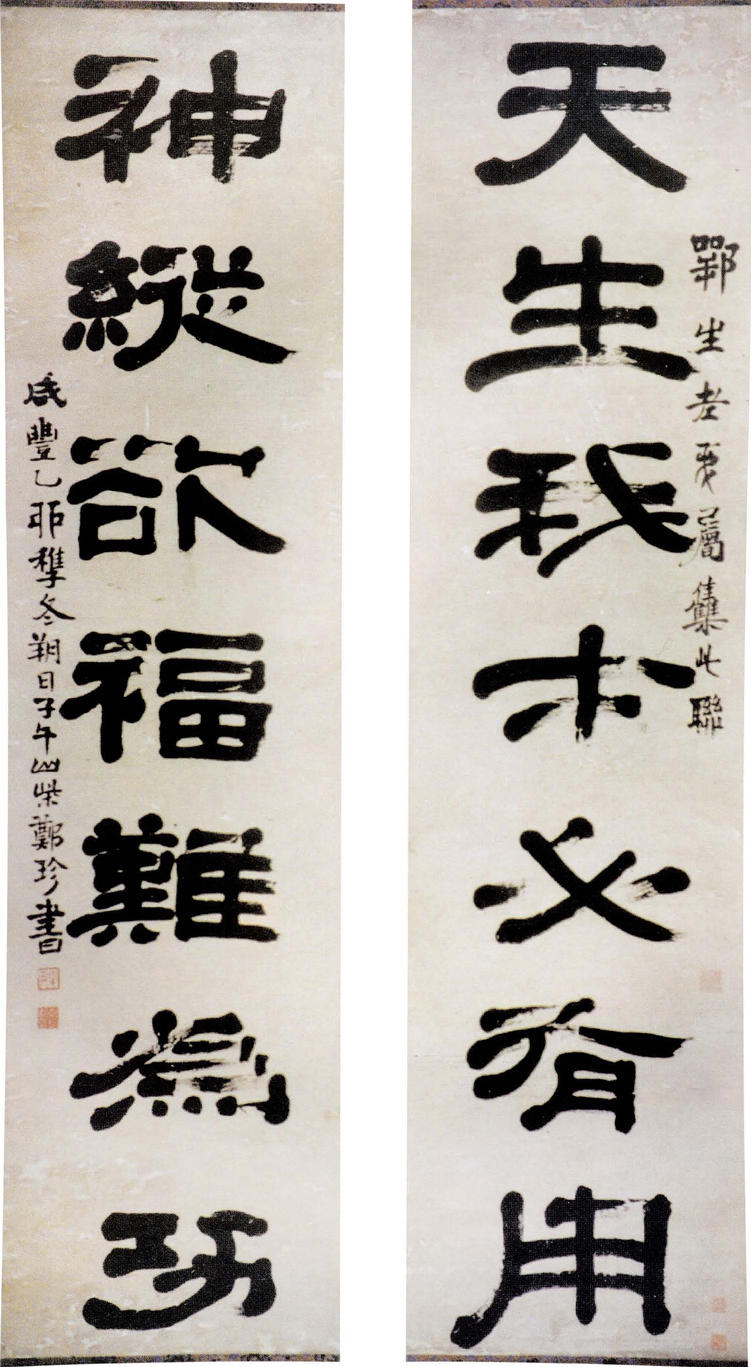 鄂生老弟屬集此聯
天生我才必有用
神縱欲福難為功
咸豐乙卯稺冬朔日子午山柴鄭珍書